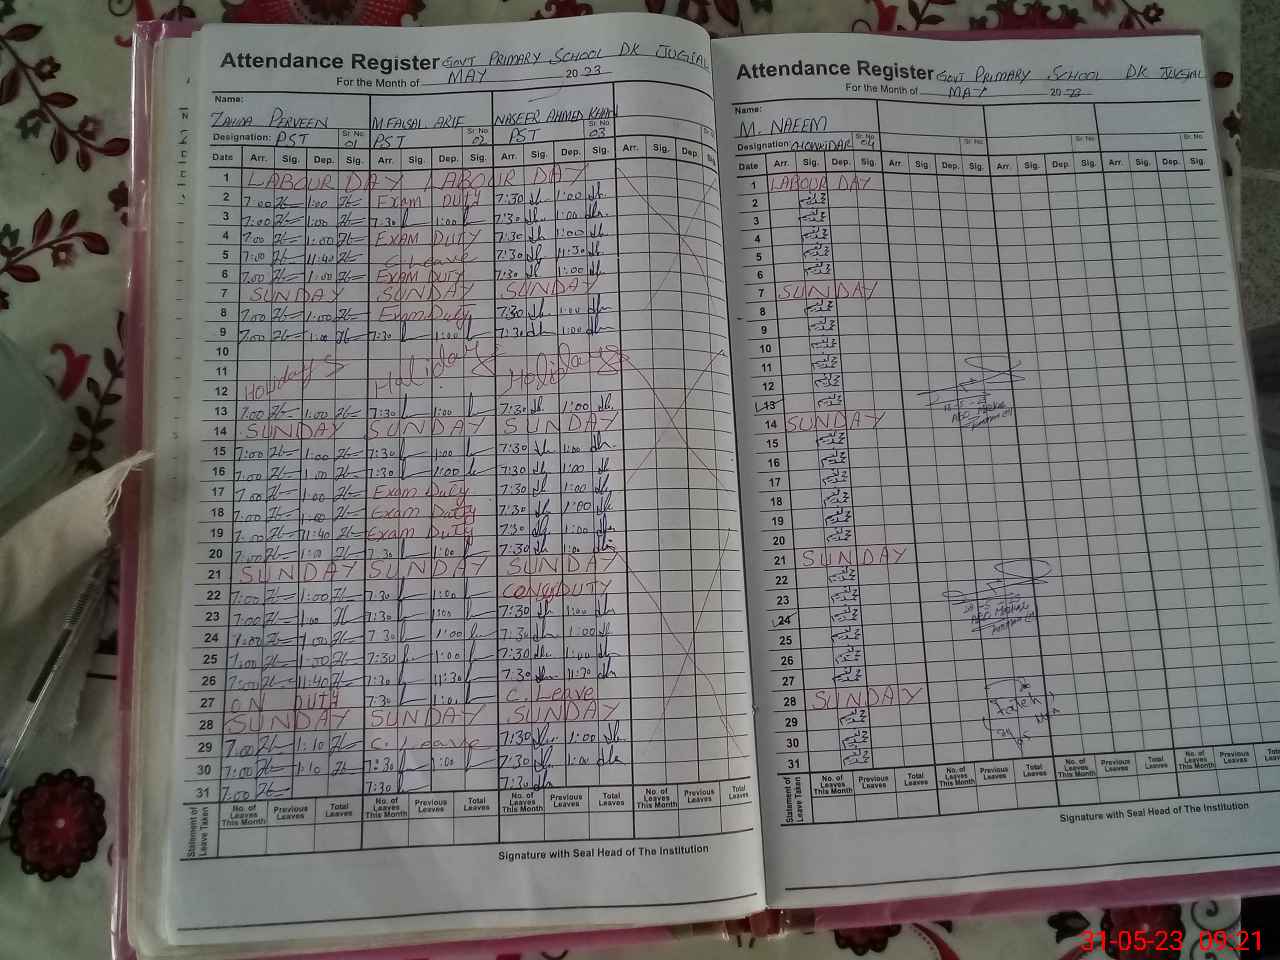 Attendance Register GOVT PRIMARY SCHOOL DK JUGIAL
For the Month of MAY 2023
Name: ZAHIDA PERVEEN M FAISAL ARIF NASEER AHMED KHAN
Designation: PST Sr. No. 01 PST Sr. No. 02 PST Sr. No. 03 Sr. No.
Date Arr. Sig. Dep. Sig. Arr. Sig. Dep. Sig. Arr. Sig. Dep. Sig. Arr. Sig. Dep. Sig.
1 LABOUR DAY LABOUR DAY
2 7:00 1:00 Exam DUTY 7:30 1:00
3 7:00 1:00 7:30 1:00 7:30 1:00
4 7:00 1:00 EXAM DUTY 7:30 1:00
5 7:00 11:40 C. Leave 7:30 11:30
6 7:00 1:00 EXAM DUTY 7:30 1:00
7 SUNDAY SUNDAY SUNDAY
8 7:00 1:00 Exam Duty 7:30 1:00
9 7:00 1:00 7:30 1:00 7:30 1:00
10
11 Holidays Holidays Holidays
12
13 7:00 1:00 7:30 1:00 7:30 1:00
14 SUNDAY SUNDAY SUNDAY
15 7:00 1:00 7:30 1:00 7:30 1:00
16 7:00 1:00 7:30 1:00 7:30 1:00
17 7:00 1:00 Exam Duty 7:30 1:00
18 7:00 1:00 Exam Duty 7:30 1:00
19 7:00 11:40 Exam DUTY 7:30 1:00
20 7:00 1:00 7:30 1:00 7:30 1:00
21 SUNDAY SUNDAY SUNDAY
22 7:00 1:00 7:30 1:00 DUTY
23 7:00 1:00 7:30 1:00 7:30 1:00
24 7:00 1:00 7:30 1:00 7:30 1:00
25 7:00 1:00 7:30 1:00 7:30 1:00
26 7:00 11:40 7:30 11:30 7:30 11:30
27 ON DUTY 7:30 1:00 C. Leave
28 SUNDAY SUNDAY SUNDAY
29 7:00 1:10 C. Leave 7:30 1:00
30 7:00 1:10 7:30 1:00 7:30 1:00
31 7:00 7:30 7:30
Statement of Leave Taken No. of Leaves This Month Previous Leaves Total Leaves No. of Leaves This Month Previous Leaves Total Leaves No. of Leaves This Month Previous Leaves Total Leaves No. of Leaves This Month Previous Leaves Total Leaves
Signature with Seal Head of The Institution
Attendance Register GOVT PRIMARY SCHOOL DK JUGIAL
For the Month of MAY 2023
Name: M. NAEEM
Designation: CHOWKIDAR Sr. No. 04 Sr. No. Sr. No. Sr. No.
Date Arr. Sig. Dep. Sig. Arr. Sig. Dep. Sig. Arr. Sig. Dep. Sig. Arr. Sig. Dep. Sig.
1 LABOUR DAY
2
3
4
5
6
7 SUNDAY
8
9
10
11
12
13
14 SUNDAY
15
16
17
18
19
20
21 SUNDAY
22
23
24
25
26
27
28 SUNDAY
29
30
31
Statement of Leave Taken No. of Leaves This Month Previous Leaves Total Leaves No. of Leaves This Month Previous Leaves Total Leaves No. of Leaves This Month Previous Leaves Total Leaves No. of Leaves This Month Previous Leaves Total
Signature with Seal Head of The Institution
31-05-23 09:21